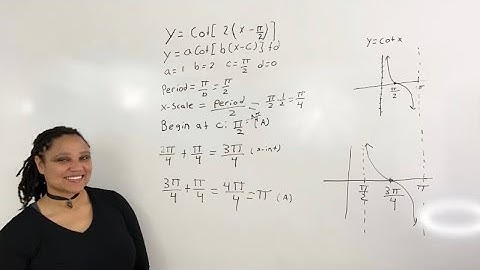 y = Cot[ 2(x - π/2)]
y = a Cot[ b(x-c)] + d
a = 1 b = 2 c = π/2 d = 0
Period = π/b = π/2
x-Scale = Period/2 = π/2 · 1/2 = π/4
Begin at c: π/2 = 2π/4 (A)
2π/4 + π/4 = 3π/4 (x-int)
3π/4 + π/4 = 4π/4 = π (A)
y = cot x
π/2 π
π/2 3π/4 π